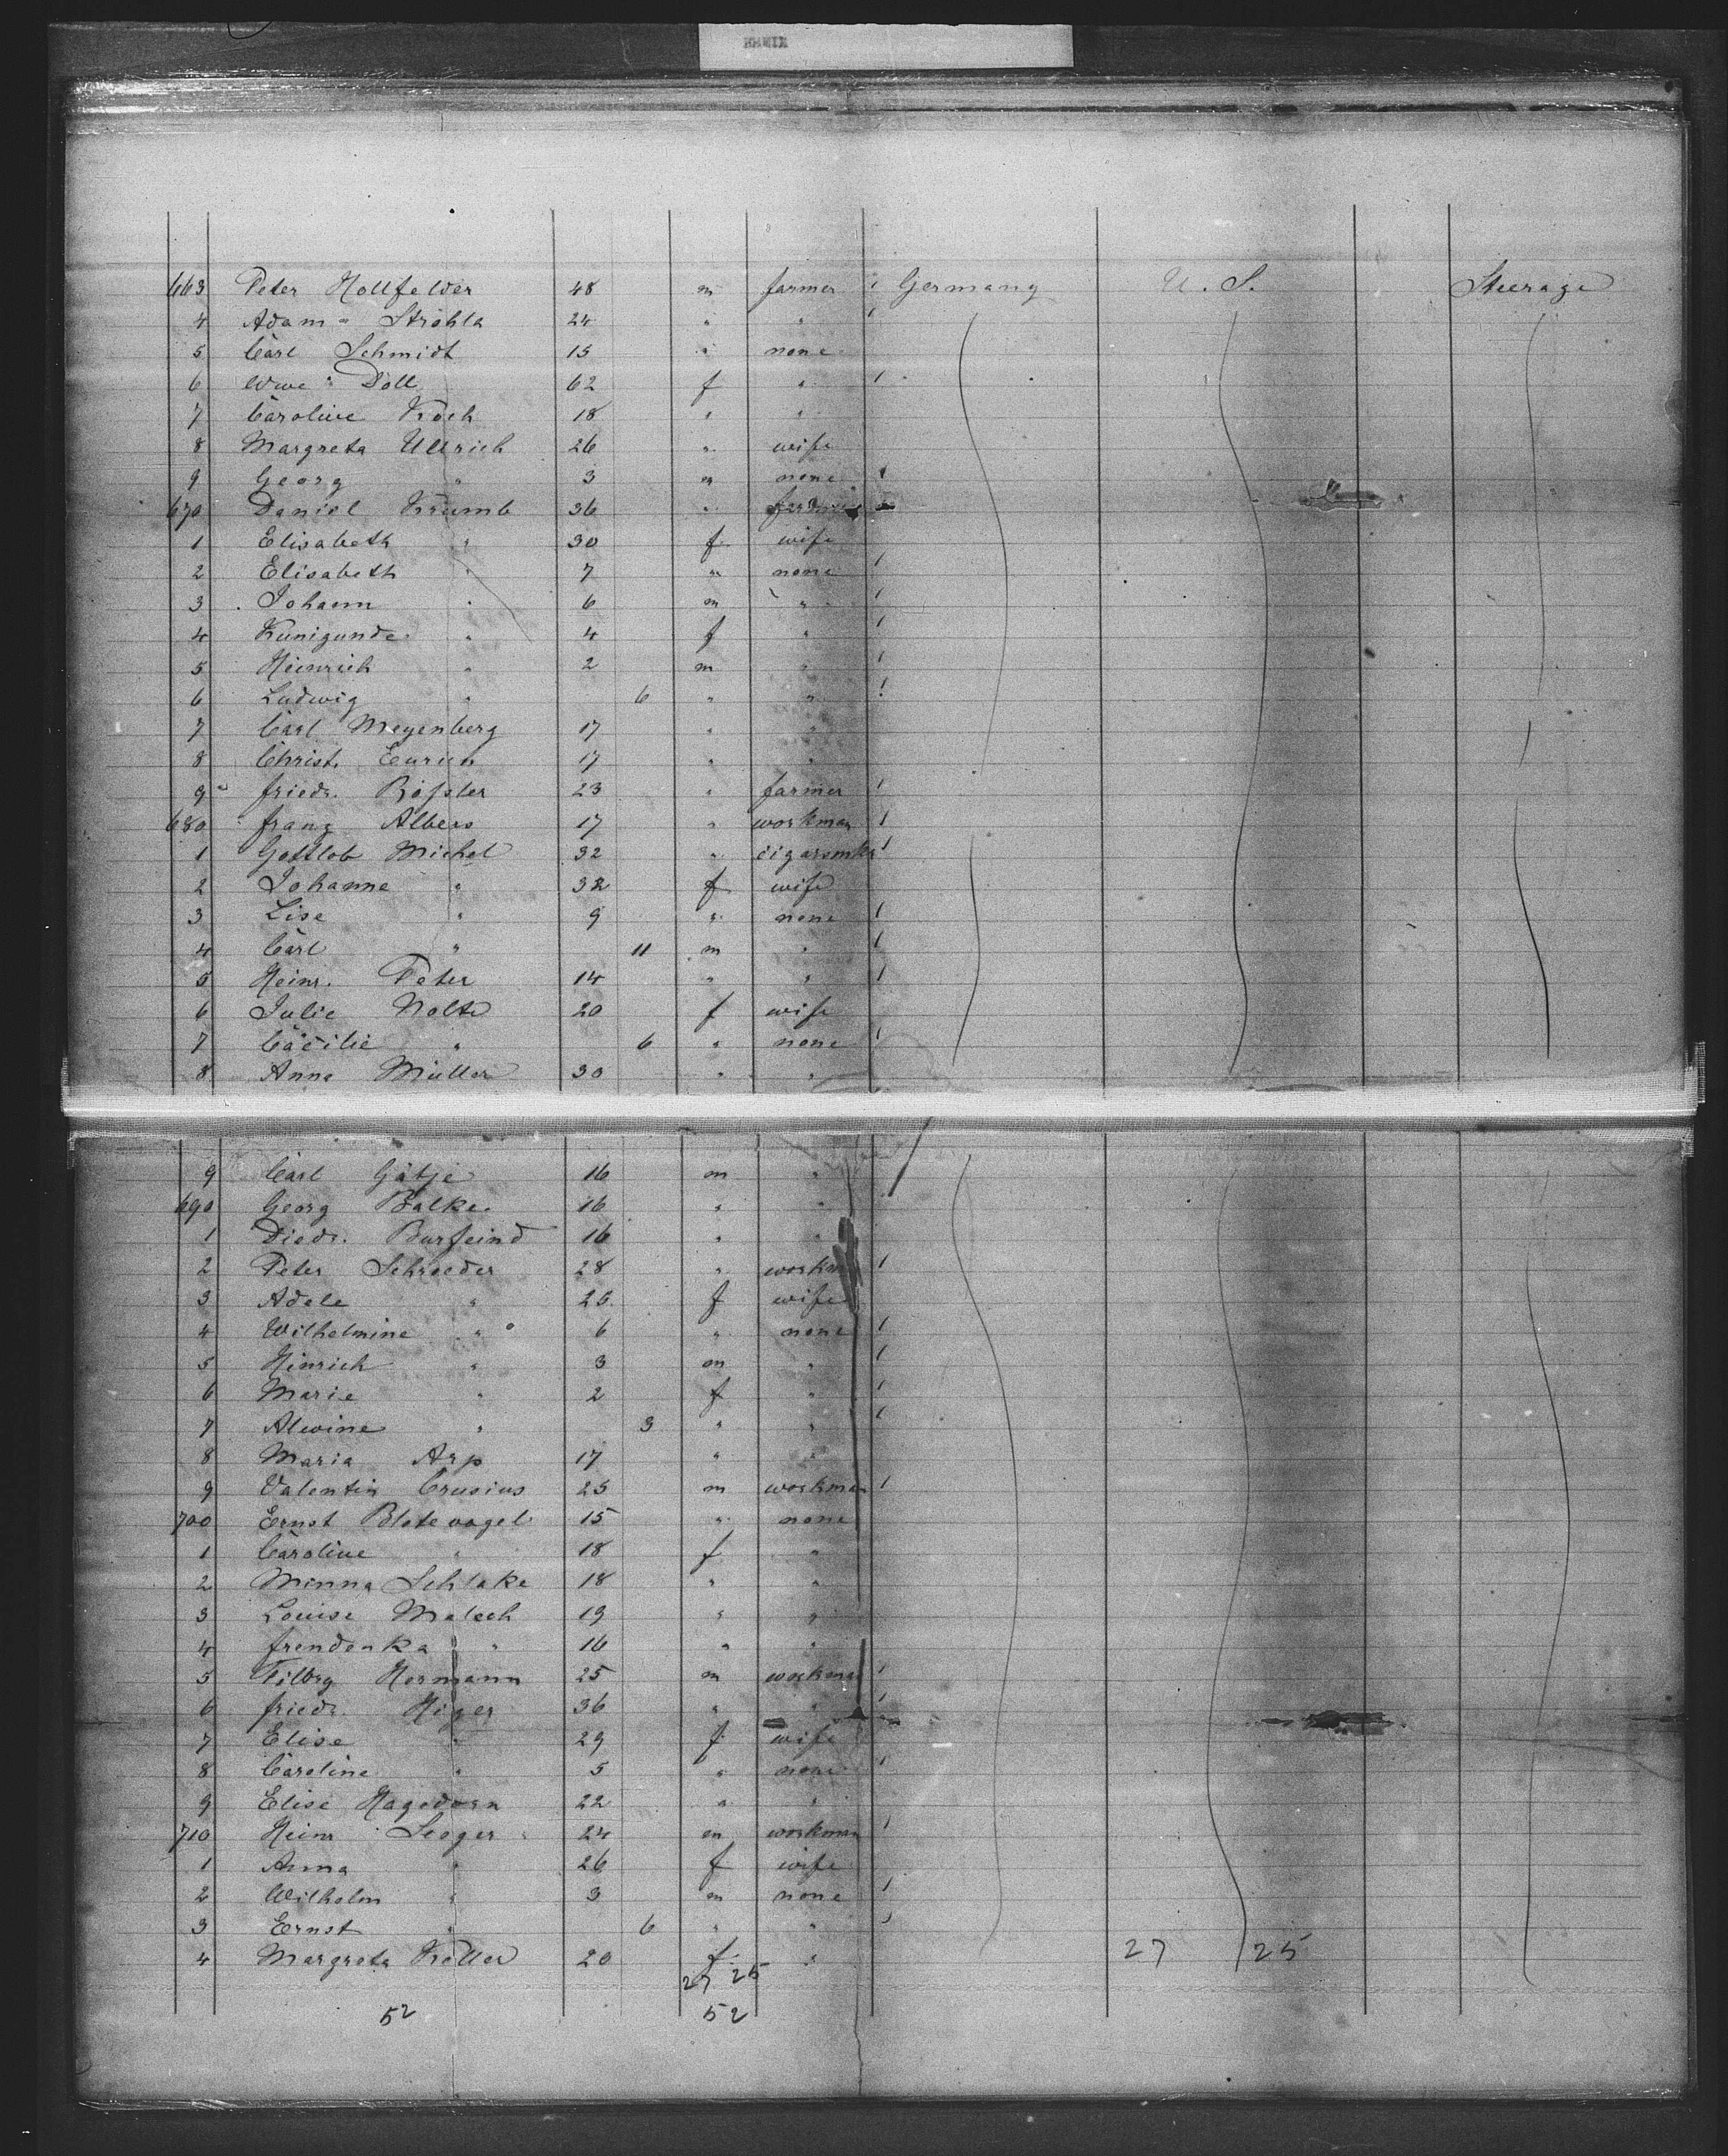 663 Peter Hollfelder 48 m farmer Germany U. S. Steerage
4 Adam Ströhla 24 " "
5 Carl Schmidt 15 " none
6 Wwe Doll 62 f "
7 Caroline Koch 18 " "
8 Margreta Ullrich 26 " wife
9 Georg " 3 m none
670 Daniel Krumb 36 " farmer
1 Elisabeth " 30 f wife
2 Elisabeth " 7 " none
3 Johann " 6 m "
4 Kunigunde " 4 f "
5 Heinrich " 2 m "
6 Ludwig " 6 " "
7 Carl Meyenberg 17 " "
8 Christ. Eurich 17 " "
9 Friedr. Rößler 23 " farmer
680 Franz Albers 17 " workman
1 Gottlob Michel 32 " cigarsmkr
2 Johanne " 32 f wife
3 Lise " 9 " none
4 Carl " 11 m "
5 Heinr. Peter 14 " "
6 Julie Nolte 20 f wife
7 Cäcilie " 6 " none
8 Anna Müller 30 " "
9 Carl Götje 16 m "
690 Georg Balke 16 " "
1 Diedr. Burfeind 16 " "
2 Peter Schroeder 28 " workman
3 Adele " 25 f wife
4 Wilhelmine " 6 " none
5 Hinrich " 3 m "
6 Marie " 2 f "
7 Alwine " 3 " "
8 Maria Arp 17 " "
9 Valentin Crusius 25 m workman
700 Ernst Blotevogel 15 " none
1 Caroline " 18 f "
2 Minna Schlake 18 " "
3 Louise Malech 19 " "
4 " 16 " "
5 Hermann 25 m workman
6 Friedr. 36 " "
7 Elise " 29 f wife
8 Caroline " 5 " none
9 Elise Hagedorn 22 " "
710 Heinr Seeger 24 m workman
1 Anna " 26 f wife
2 Wilhelm " 3 m none
3 Ernst " 6 " "
4 Margreta Keller 20 f " 27 25
27 25
52 52